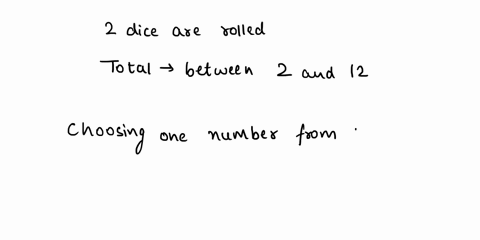 2 dice are rolled
Total → between 2 and 12
Choosing one number from .